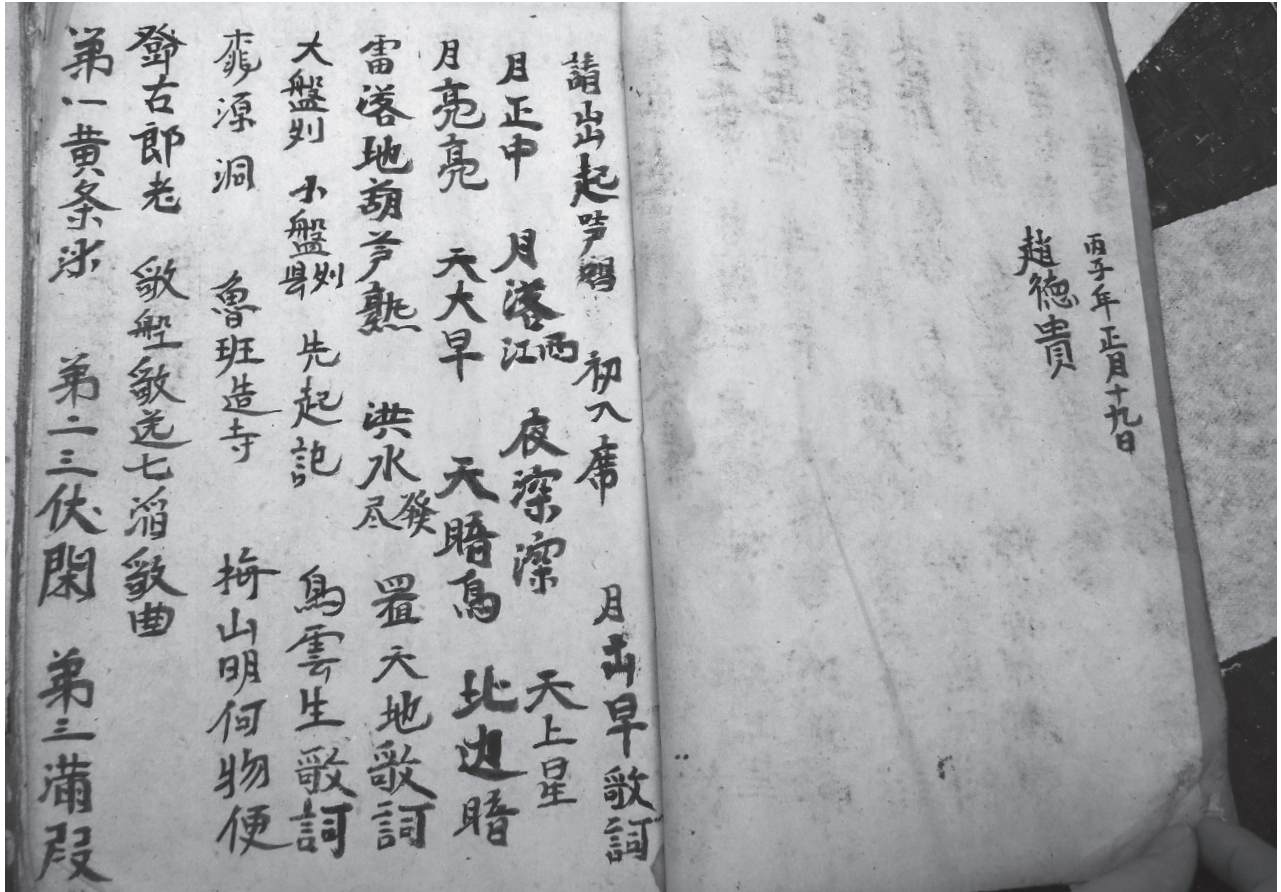 丙子年正月十九日
趙德貴
請出起声唱 初入席 月出早歌詞
月正中 月落江西 夜深深 天上星
月亮亮 天大早 天暗烏 北边暗
雷落地葫芦熟 洪水發尽 置天地歌詞
大盤州 小盤州县 先起 烏雲生歌詞
源洞 魯班造寺 梅山明何物便
鄧古郎老 歌船歌送七滔歌曲
第一黄条沙 第二三伏閑 第三满段